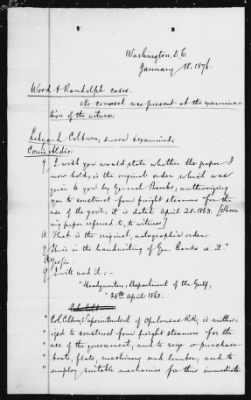 Washington, D.C.
January 18. 1876.
Wood & Randolph cases.
No counsel was present at the examina-
tion of the witness.
L. Colburn, sworn & examined,
Q I wish you would state whether the paper I
now hold, is the original order which was
given to you by General Banks, authorizing
you to construct four freight steamers for the
use of the govt; it is dated April 28. 1863. [Show-
ing paper referred to, to witness]
A That is the original, autographic order.
Q This is in the handwriting of Gen. Banks is it?
A Yes sir.
Q I will read it:—
"Headquarters, Department of the Gulf,
28th April 1863.
"Col. Superintendent of Opelousas R.R., is author-
"ized to construct four freight steamers for the
"use of the government, and to seize or purchase
"boats, flats, machinery and lumber, and to
"employ suitable mechanics for their immediate